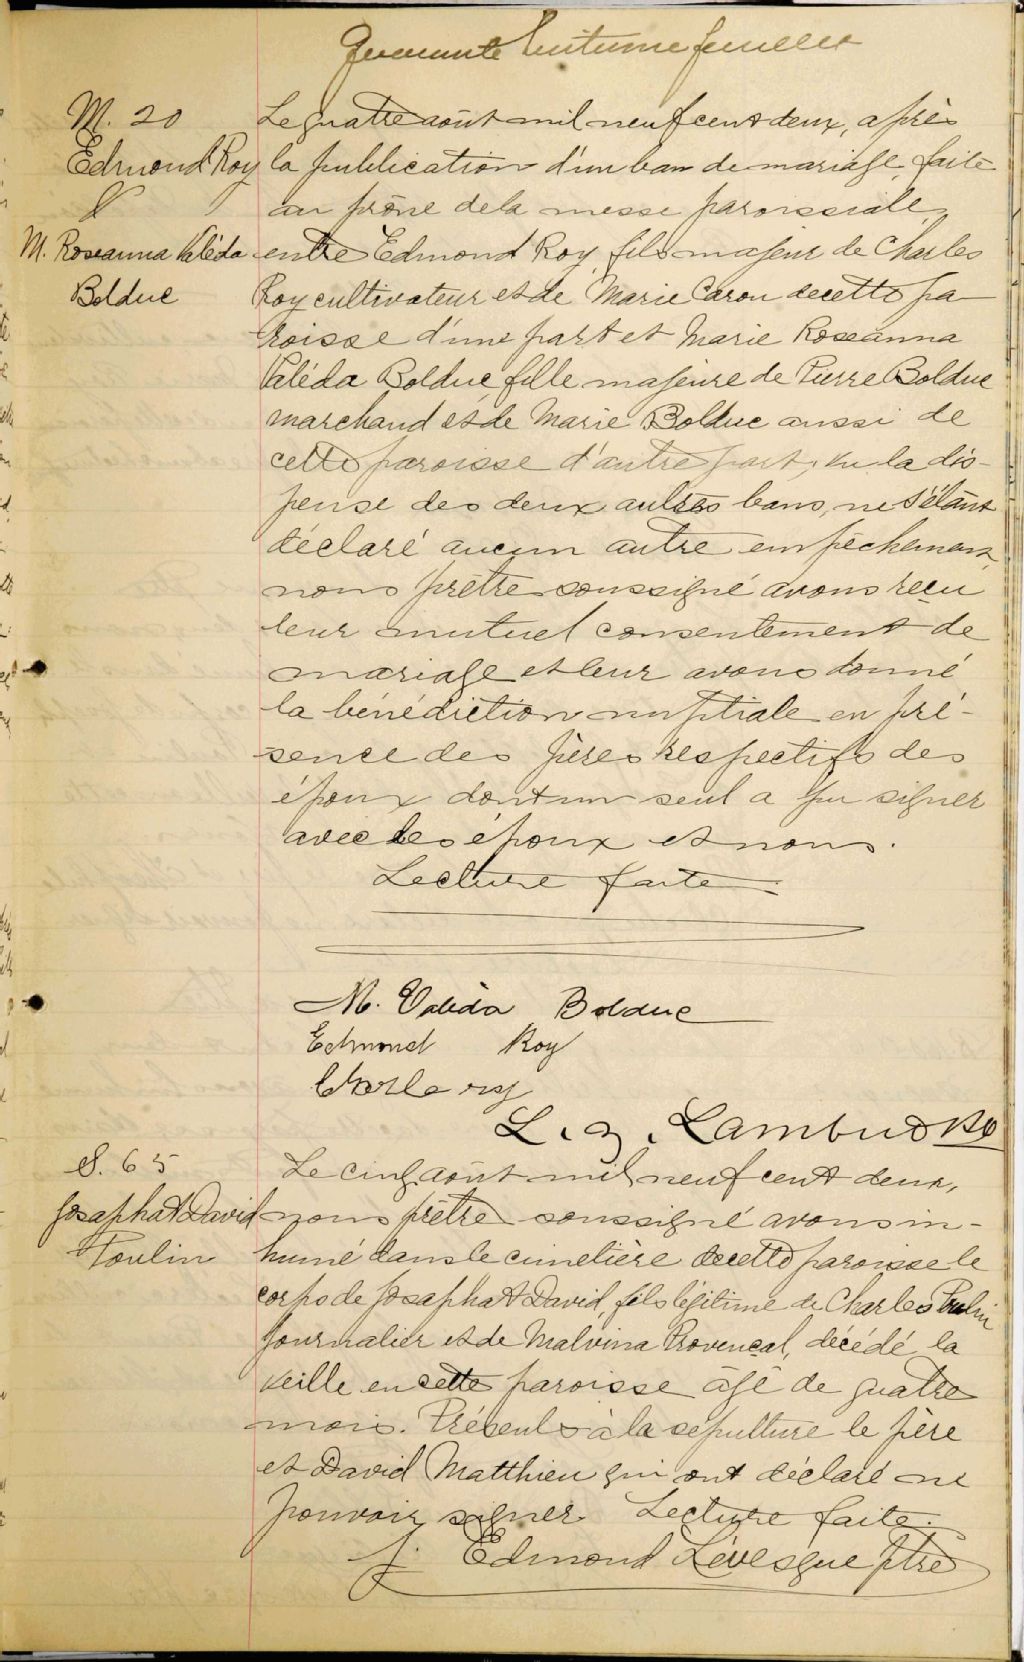 Quarante huitième feuillet
M. 20
Edmond Roy
&
M. Roseanna Valéda
Bolduc
Le quatre août mil neuf cent deux, après
la publication d'un ban de mariage faite
au prône de la messe paroissiale
entre Edmond Roy, fils majeur de Charles
Roy cultivateur et de Marie Caron de cette pa-
roisse d'une part et Marie Roseanna
Valéda Bolduc fille majeure de Pierre Bolduc
marchand et de Marie Bolduc aussi de
cette paroisse d'autre part, vu la dis-
pense des deux autres bans, ne s'étant
déclaré aucun autre empêchement,
nous prêtre soussigné avons reçu
leur mutuel consentement de
mariage et leur avons donné
la bénédiction nuptiale en pré-
sence des pères respectifs des
époux dont un seul a pu signer
avec les époux et nous.
Lecture faite.
M. Valéda Bolduc
Edmond Roy
Charle roy
L. Z. Lambert
S. 65
Josaphat David
Poulin
Le cinq août mil neuf cent deux,
nous prêtre soussigné avons in-
humé dans le cimetière de cette paroisse le
corps de Josaphat David, fils légitime de Charles Poulin
journalier et de Malvina Provençal, décédé la
veille en cette paroisse âgé de quatre
mois. Présents à la sépulture le père
et David Matthieu qui ont déclaré ne
pouvoir signer. Lecture faite.
J. Edmond Lévesque ptre